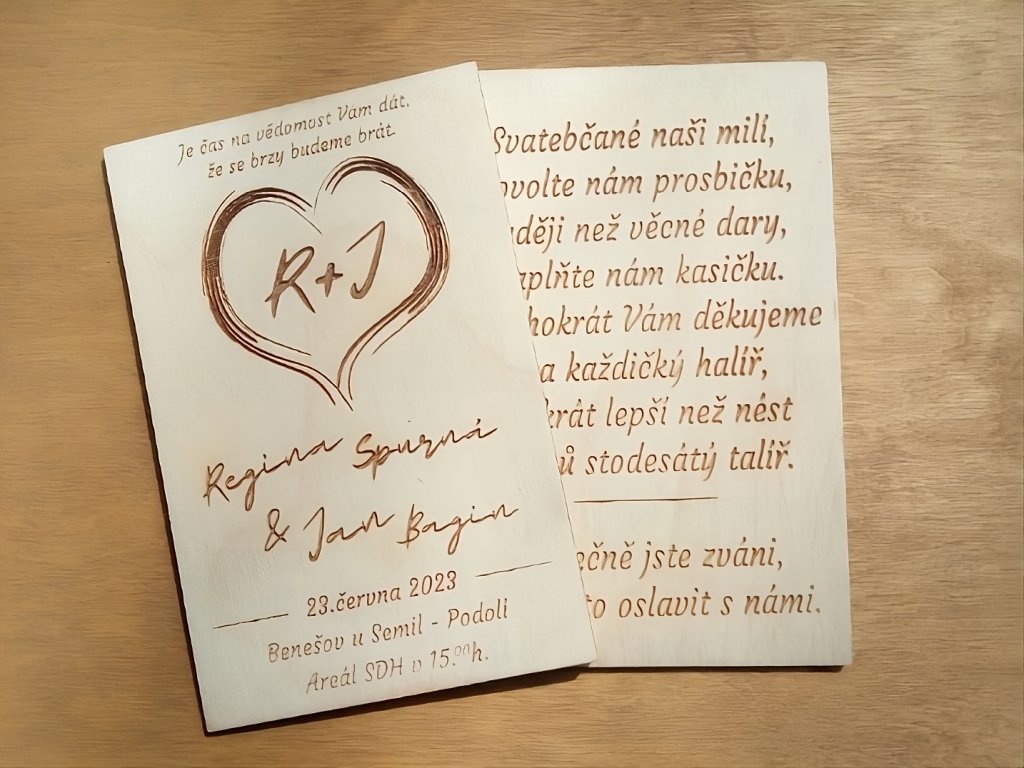 Je čas na vědomost Vám dát,
že se brzy budeme brát.
R+J
Regina Spurná
& Jan Bagin
23.června 2023
Benešov u Semil - Podolí
Areál SDH v 15.⁰⁰h.
Svatebčané naši milí,
ovolte nám prosbičku,
ději než věcné dary,
aplňte nám kasičku.
hokrát Vám děkujeme
a každičký halíř,
krát lepší než nést
ů stodesátý talíř.
ečně jste zváni,
to oslavit s námi.